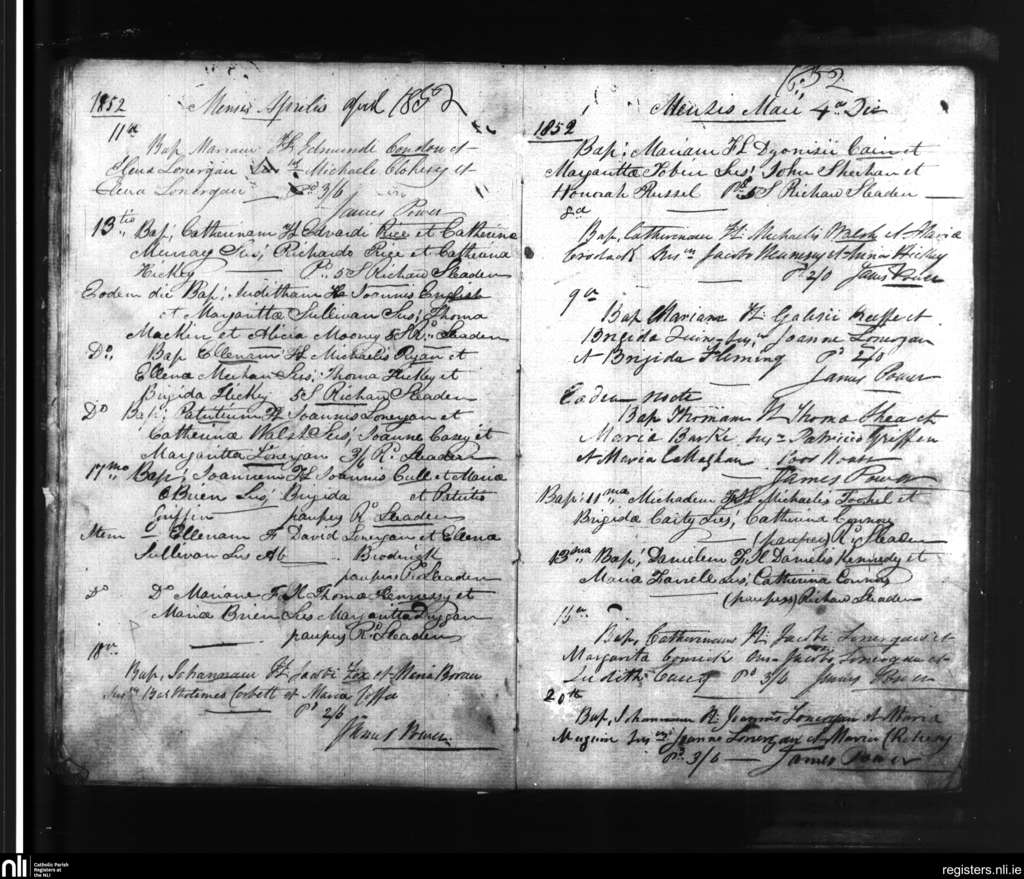 1852
Mensis Aprilis April 1852
11a
Bap Mariam FL Edmundi Condon et
Elena Lonergan Michaele Clohesy et
Elena Lonergan Pd 3/6
James Power
13tio Bap; Catherinam FL Edvardi Rice et Catherina
Murray Sus; Richardo Rice et Catherina
Hickey Pd 5S Richard Sleaden
Eodem die Bap; Juditham FL Joannis English
et Margaritta Sullivan Sus; Thoma
Mackin et Alicia Mooney 5S Rd Sleaden
Do Bap Ellenam FL Michaelis Ryan et
Ellena Meehan Sus; Thoma Hickey et
Brigida Hickey 5S Richard Sleaden
Do Bap; FL Joannis Lonergan et
Catherina Walsh Sus; Joanne Casey et
Margaritta Lonergan 3/6 Rd Sleaden
17mo Bap; Joannem FL Joannis Cull et Maria
OBrien Sus; Brigida et
Griffin paupes Rd Sleaden
Item Ellenam F David Lonergan et Ellena
Sullivan Sus Ab Broderick
paupes Rd Sleaden
Do Do F FL Thoma Hennessy et
Maria Brien Sus Margaritta Duggan
paupes Rd Sleaden
18va
Bap, Johannam FL Jacobi Fox et Maria
Bartholomeo Corbett et Maria
Pd 2/6
James Power
1852
Mensis Maii 4a Die
1852
Bap; Mariam FL Dyonisii Cain et
Margaritta Tobin Sus; John Sheehan et
Honorah Russel Pd 5S Richard Sleaden
8d
Bap, Catherinam FL Michaelis Walsh et Maria
Jacobo et Anna Hickey
Pd 2/0 James Power
9a
Bap Mariam FL Keeffe et
Brigida Quin Joanne Lonergan
et Brigida Fleming Pd 2/0
James Power
Eadem nocte
Bap Thomam FL Thoma Shea et
Maria Burke Patricio Griffen
et Maria Callaghan
James Power
Bap; 11ma Michaelem FL Michaelis et
Brigida Carty Sus; Catherina
(paupes) Rd Sleaden
13ma Bap; Danielem FL Danielis Kennedy et
Maria Farrell Sus; Catherina
(paupes) Richard Sleaden
15a
Bap, Catherinam FL Jacobi Lonergan et
Margarita Jacobo Lonergan et
Judith Casey Pd 3/6 James Power
20th
Bap, Johannam FL Joannis Lonergan et Maria
Joanne Lonergan et Maria
Pd 3/6 James Power
nli
Catholic Parish
Registers at
the NLI
registers.nli.ie